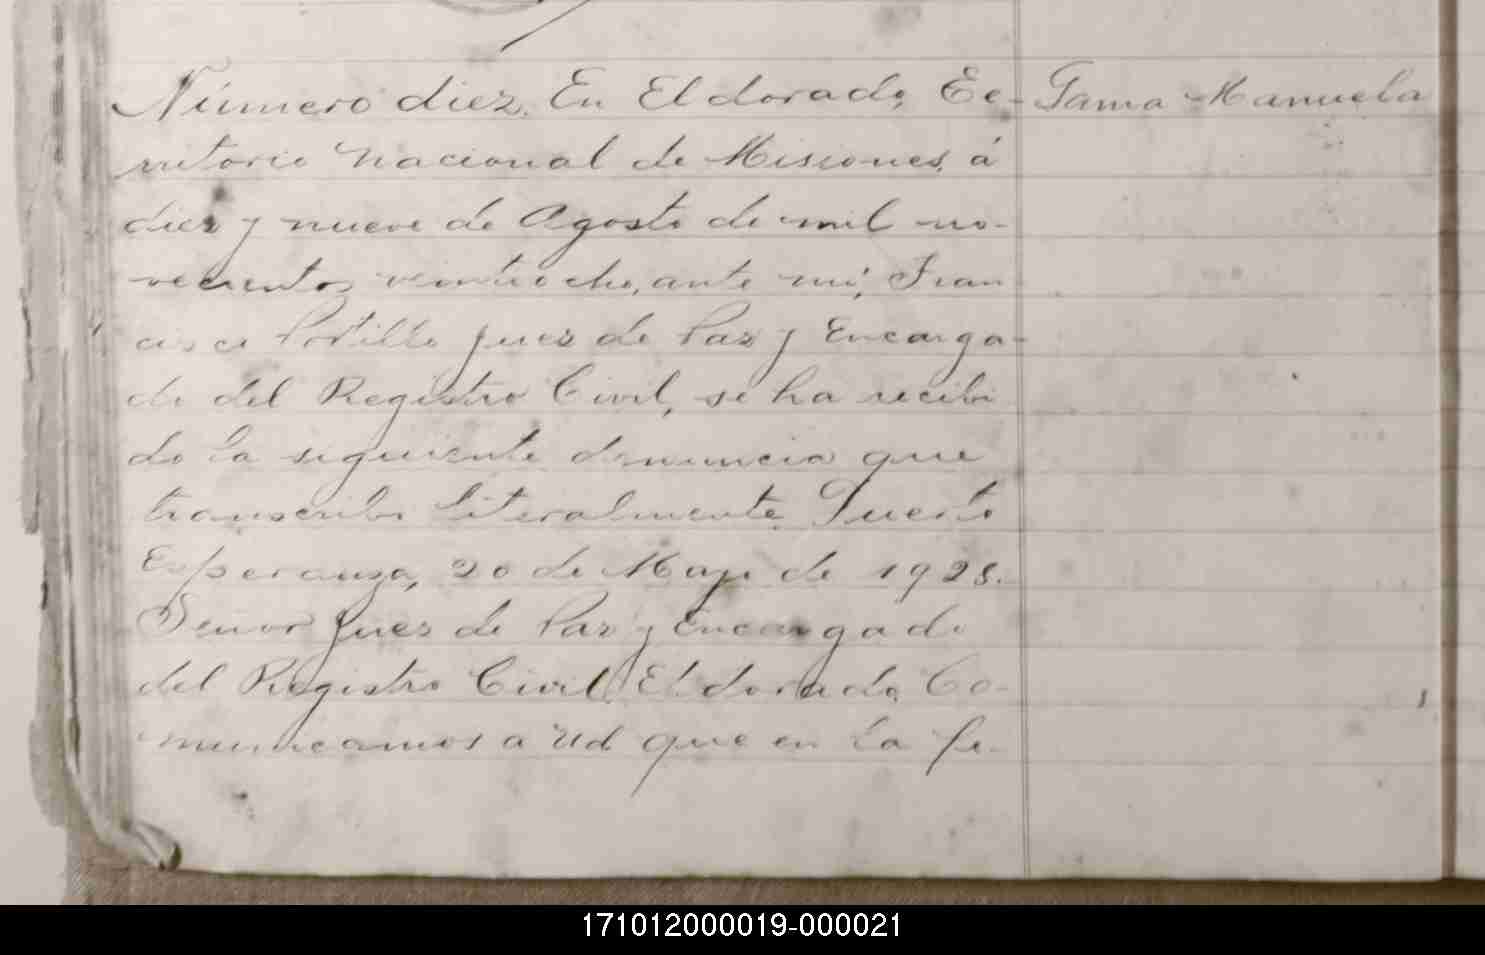 Número diez. En El dorado, Te- Gama Manuela
rritorio Nacional de Misiones, á
diez y nueve de Agosto de mil no-
vecientos veintiocho, ante mí, Fran
cisco Portillo Juez de Paz y Encarga-
do del Registro Civil, se ha recibi
do la siguiente denuncia que
transcribo literalmente. Puerto
Esperanza, 20 de Mayo de 1928.
Señor Juez de Paz y Encargado
del Registro Civil, El dorado. Co-
municamos a Ud que en la fe-
171012000019-000021